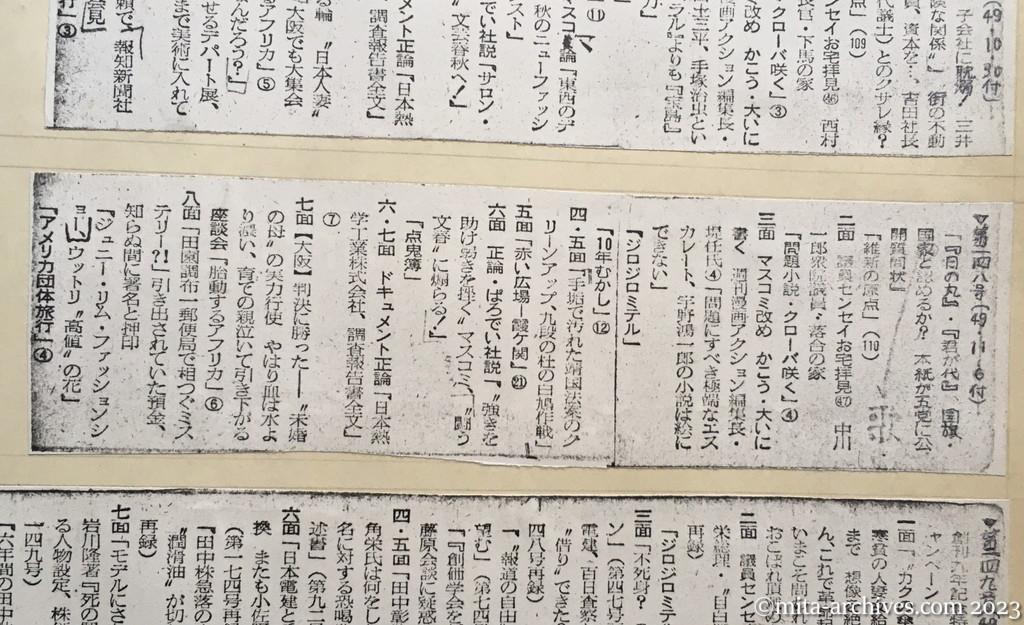 (49・10・30付)
子会社に
三井
険な関係〟 街の不動
員、資本を…、吉田社長
代議士)とのクサレ縁?
点」(109)
ンセイお宅拝見㊻ 西村
長官・下馬の家
クローバ咲く」③
改め かこう・大いに
漫画アクション編集長・
士三平、手塚治虫とい
ラル』よりも『宝島』
⑪
マスコミ論「東西のデ
秋のニューファッシ
スト」
でい社説「サロン・
〝文芸春秋へ!」
メント正論「日本熱
調査報告書全文」
る輪 〝日本人妻〟
大阪でも大集会
るアフリカ」⑤
んだろう?」
せるデパート展、
まで美術に入れて
頼で 報知新聞社
会見」
行」③
▽第一四八号(49・11・6付)
「『日の丸』・『君が代』、国旗・
国家と認めるか? 本紙が五党に公
開質問状」
「維新の原点」(110)
二面 議員センセイお宅拝見㊼ 中川
一郎衆院議員・落合の家
「問題小説・クローバ咲く」④
三面 マスコミ改め かこう・大いに
書く 週刊漫画アクション編集長・
堤任氏④「問題にすべき極端なエス
カレート、宇野鴻一郎の小説は絵に
できない」
「ジロジロミテル」
「10年むかし」⑫
四・五面「手垢で汚れた靖国法案のク
リーンアップ、九段の杜の白鳩作戦」
五面「赤い広場―霞ケ関」㉑
六面 正論・ぱろでい社説「〝強きを
助け弱きを挫く〟マスコミ、〝闘う
文春〟に煽らる!」
「点鬼簿」
六・七面 ドキュメント正論「日本熱
学工業株式会社、調査報告書全文」
⑦
七面【大阪】判決に勝った――〝未婚
の母〟の実力行使 やはり血は水よ
り濃い、育ての親泣いて引き下がる
座談会「胎動するアフリカ」⑥
八面「田園調布―郵便局で相つぐミス
テリー?!」引き出されていた預金、
知らぬ間に署名と押印
「ジュニー・リム・ファッションシ
ョー」ウットリ〝高値〟の花」
「アメリカ団体旅行」④
▽第一四九号
創刊九年記
ャンペーン
一面「〝カク
寒貧の人妻
まで 想像
ん、これで革
いまこそ問
おこぼれ頂
二面 議員センセ
栄総理・〝目白
再録)
「ジロジロミテ
三面「不死身?
ン」(第四七号
電建、百日食祭
〝借り〟できた
四八号再録)
「〝報道の自由
望む」(第七四
「『創価学会を
藤原会談に疑惑
四・五面「田中彰
角栄氏は何をし
名に対する恐喝
述書」(第九二
六面「日本電建と
換 またも小佐
(第一七四号再
「田中株急落の
〝潤滑油〟が切
再録)
七面「モデルにさ
岩川隆著『死の
る人物設定、株
一四九号)
「六年間の田中
©mita-archives.com 2023